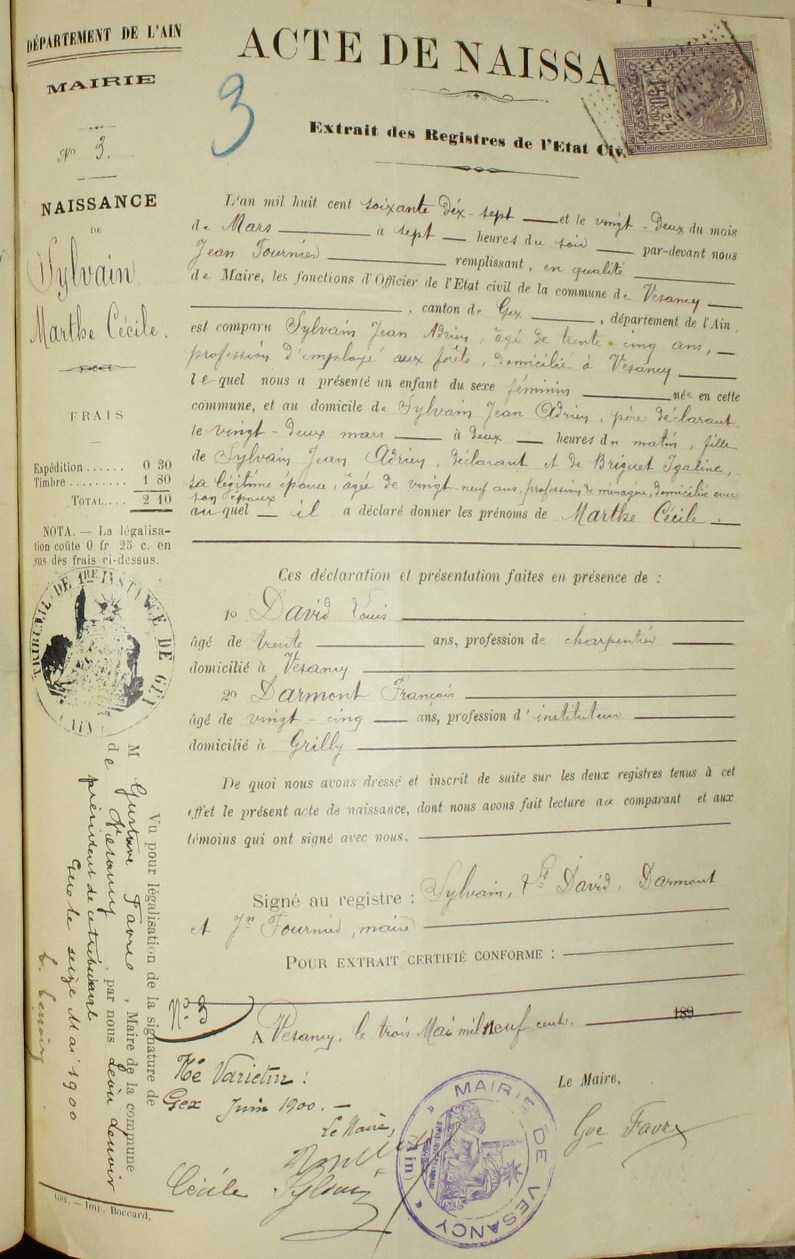 DÉPARTEMENT DE L'AIN
MAIRIE
No 3.
NAISSANCE
DE
Sylvain
Marthe Cécile.
FRAIS
Expédition...... 0 30
Timbre......... 1 80
TOTAL.... 2 10
NOTA. — La légalisa-
tion coûte 0 fr 25 c. en
sus des frais ci-dessus.
TRIBUNAL DE 1RE INSTANCE DE GEX
AIN
Vu pour légalisation de la signature de
M Gustave Favre, Maire de la commune
de Vesancy, par nous
président de ce tribunal
Gex le seize Mai 1900
Gex. — Imp. Boccard.
ACTE DE NAISSA
3
Extrait des Registres de l'Etat Civ
L'an mil huit cent soixante dix-sept et le vingt-deux du mois
de Mars à sept heures du soir par-devant nous
Jean Fournier remplissant, en qualité
de Maire, les fonctions d'Officier de l'Etat civil de la commune de Vesancy
, canton de Gex, département de l'Ain,
est comparu Sylvain Jean Adrien, âgé de trente-cinq ans,
profession d'employé aux forêts, domicilié à Vesancy
lequel nous a présenté un enfant du sexe féminin née en cette
commune, et au domicile de Sylvain Jean Adrien, père déclarant
le vingt-deux mars à deux heures du matin, fille
de Sylvain Jean Adrien, déclarant et de Briguet Igaline,
sa légitime épouse, âgée de vingt-neuf ans, profession de ménagère, domiciliée avec
son époux
auquel il a déclaré donner les prénoms de Marthe Cécile.
Ces déclaration et présentation faites en présence de :
1o David Louis
âgé de trente ans, profession de charpentier
domicilié à Vesancy
2o Darmont François
âgé de vingt-cinq ans, profession d'instituteur
domicilié à Grilly
De quoi nous avons dressé et inscrit de suite sur les deux registres tenus à cet
effet le présent acte de naissance, dont nous avons fait lecture au comparant et aux
témoins qui ont signé avec nous.
Signé au registre : Sylvain, Ls David, Darmont
et Jn Fournier, maire
POUR EXTRAIT CERTIFIÉ CONFORME :
No 3
A Vesancy, le trois Mai mil neuf cents. 189
Né Varietur :
Gex Juin 1900. —
Le Maire,
Le Maire,
Gve Favre
MAIRIE DE VESANCY
(Ain)
Cécile Sylvain